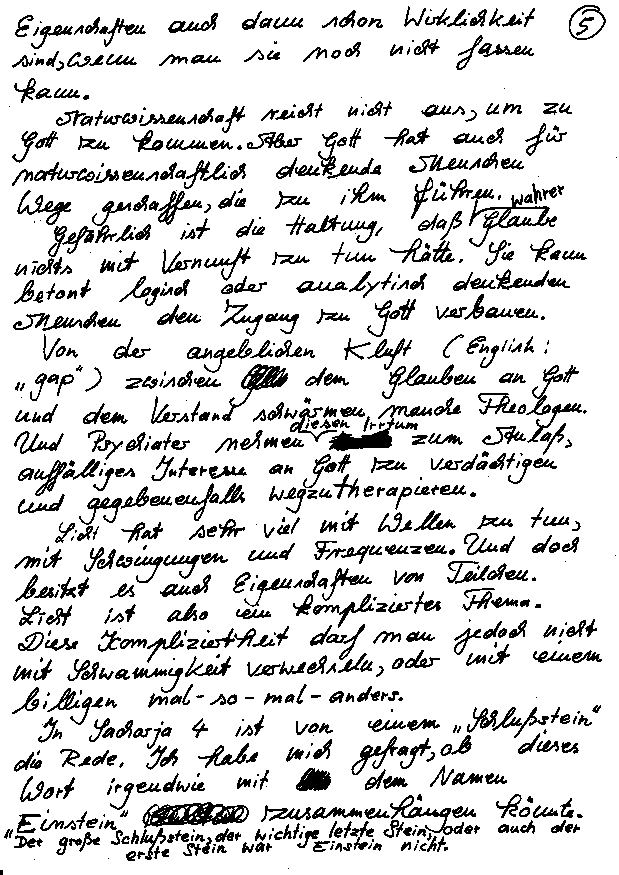 Eigenschaften auch dann schon Wirklichkeit
5
sind, wenn man sie noch nicht fassen
kann.
Naturwissenschaft reicht nicht aus, um zu
Gott zu kommen. Aber Gott hat auch für
naturwissenschaftlich denkende Menschen
Wege geschaffen, die zu ihm führen.
Gefährlich ist die Haltung, daß wahrer Glaube
nichts mit Vernunft zu tun hätte. Sie kann
betont logisch oder analytisch denkenden
Menschen den Zugang zu Gott verbauen.
Von der angeblichen Kluft (Englisch:
„gap“) zwischen dem Glauben an Gott
und dem Verstand schwärmen manche Theologen.
Und Psychiater nehmen diesen Irrtum zum Anlaß,
auffälliges Interesse an Gott zu verdächtigen
und gegebenenfalls wegzutherapieren.
Licht hat sehr viel mit Wellen zu tun,
mit Schwingungen und Frequenzen. Und doch
besitzt es auch Eigenschaften von Teilchen.
Licht ist also ein kompliziertes Thema.
Diese Kompliziertheit darf man jedoch nicht
mit Schwammigkeit verwechseln, oder mit einem
billigen mal-so-mal-anders.
In Sacharja 4 ist von einem „Schlußstein“
die Rede. Ich habe mich gefragt, ob dieses
Wort irgendwie mit dem Namen
„Einstein“ zusammenhängen könnte.
Der große Schlußstein, der wichtige letzte Stein, oder auch der
erste Stein war Einstein nicht.